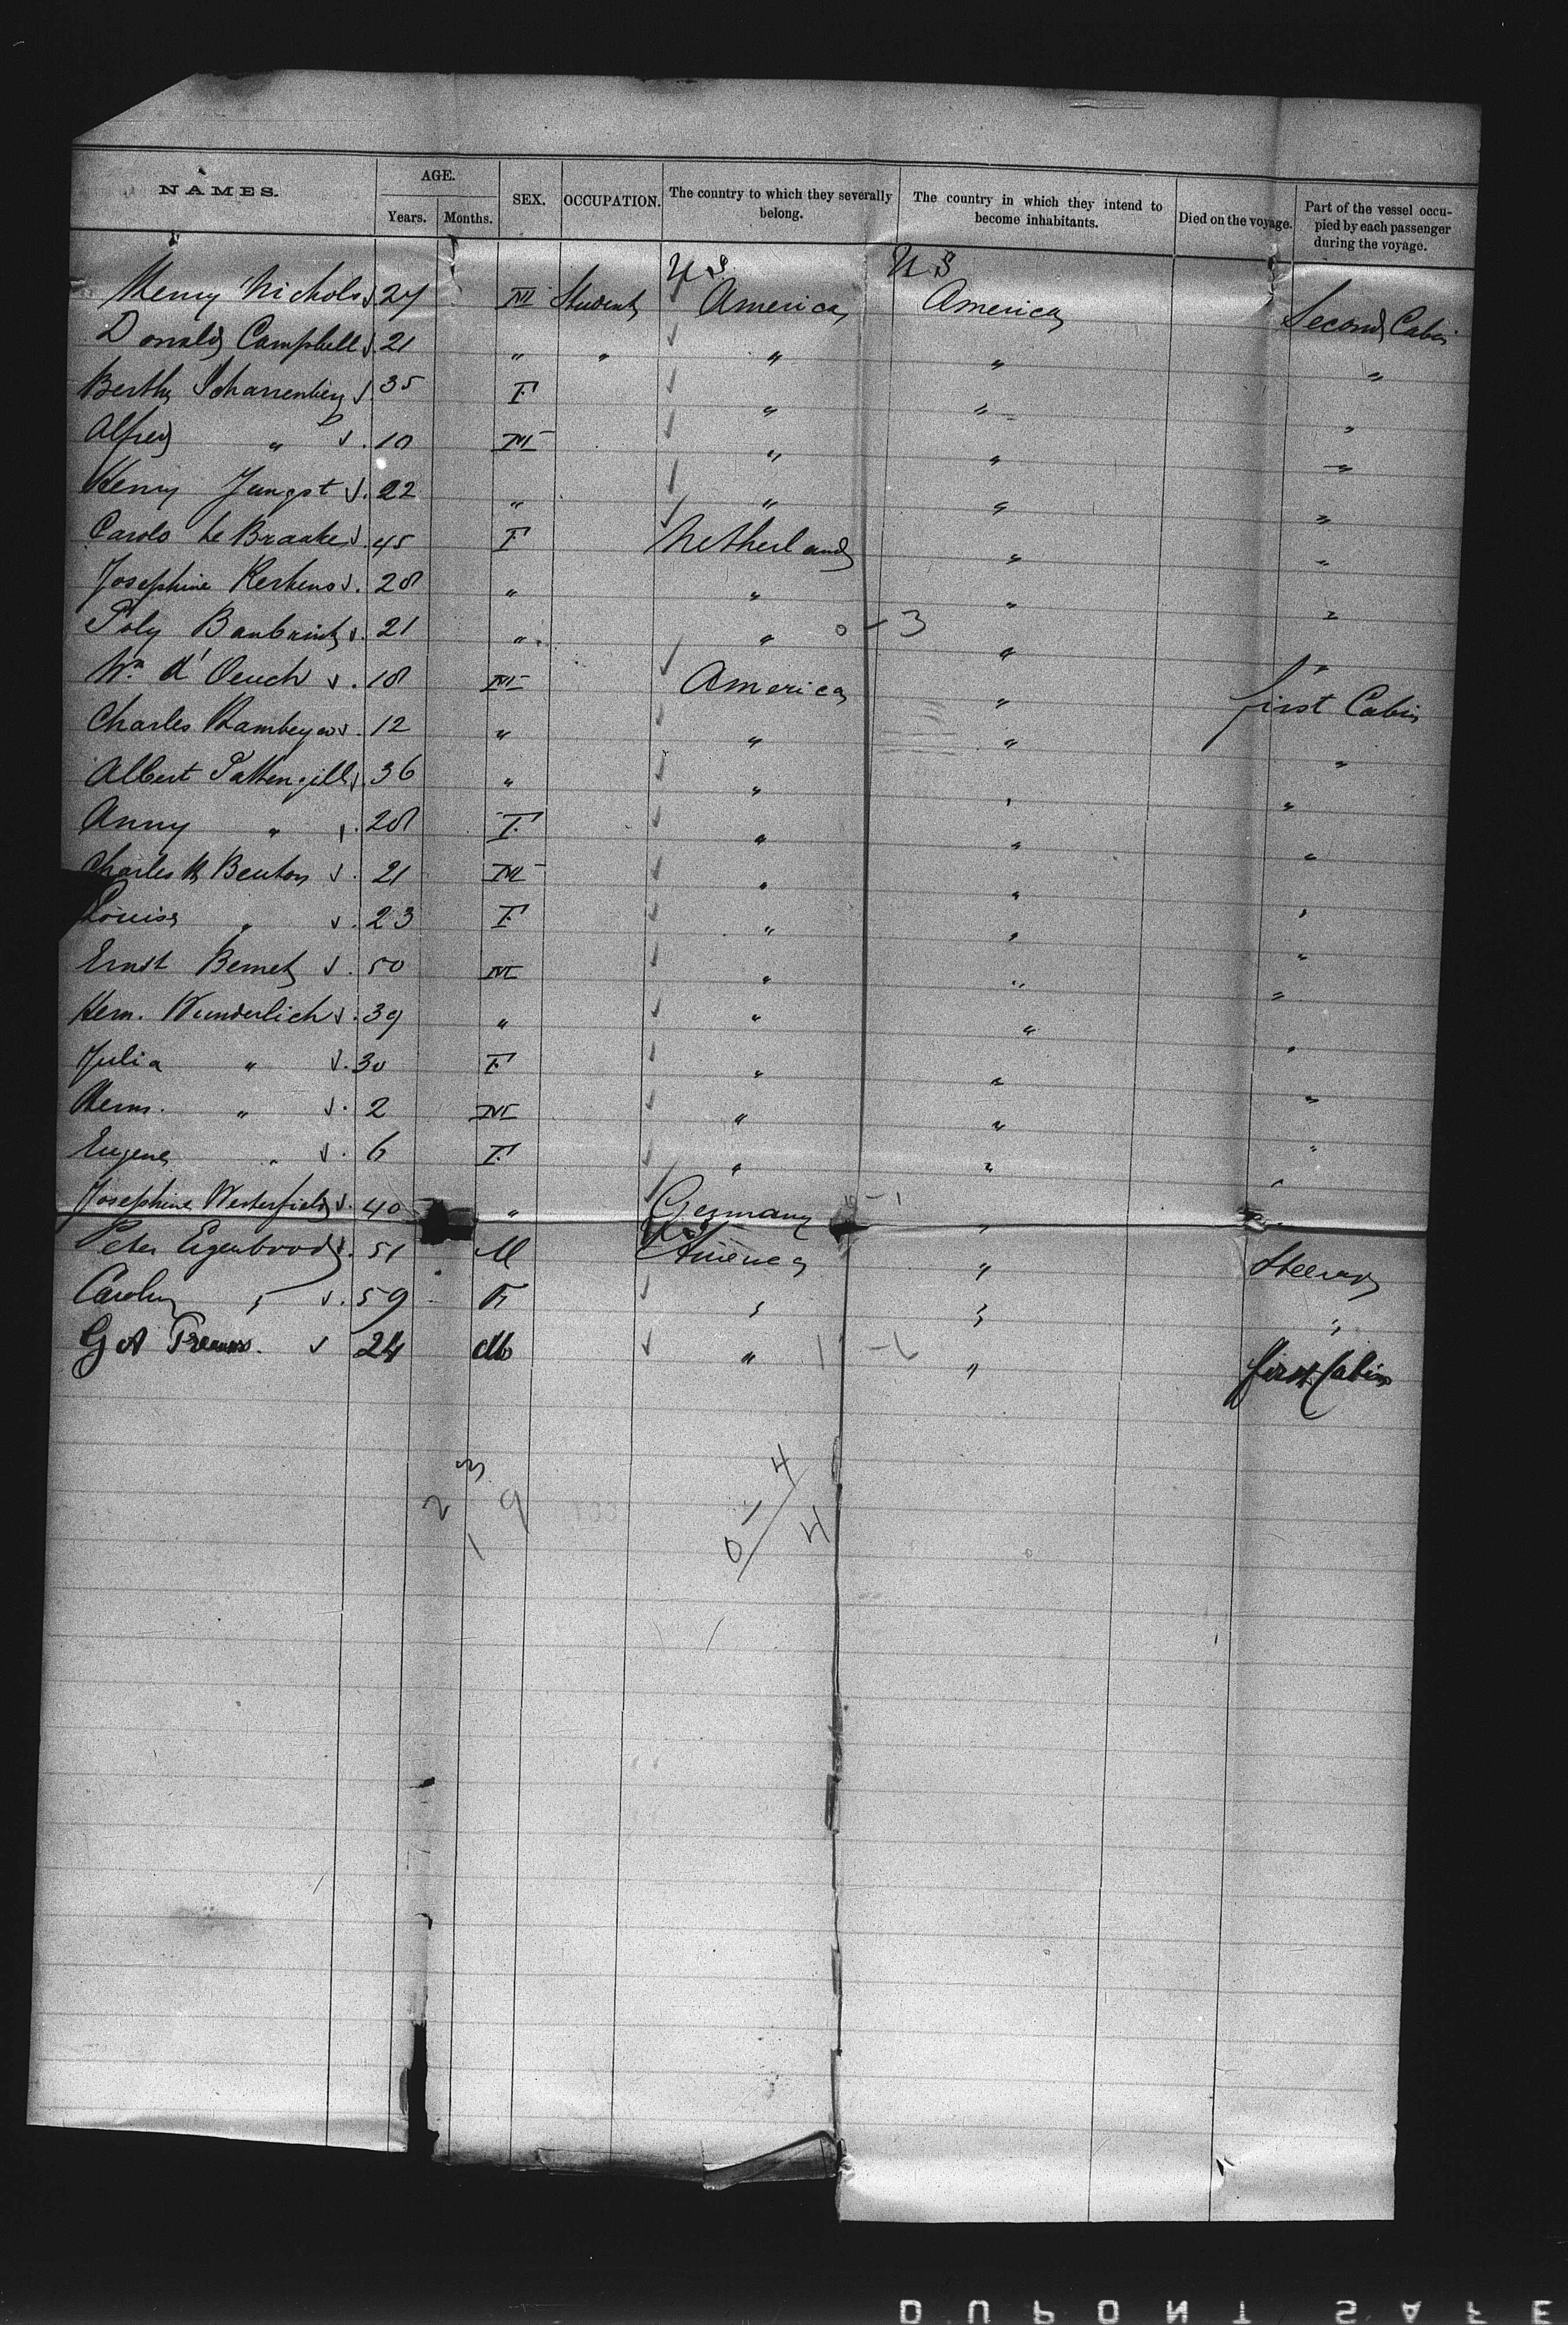 NAMES. AGE. Years. Months. SEX. OCCUPATION. The country to which they severally belong. The country in which they intend to become inhabitants. Died on the voyage. Part of the vessel occupied by each passenger during the voyage.
U S. U S
Henry Nichols 27 M Student America America Second Cabin
Donald Campbell 21 " " " " "
Bertha Scharrenberg 35 F " " "
Alfred " 10 M " " "
Henry Jungst 22 " " " "
Carolo te Braake 45 F Netherland " "
Josephine Kerkens 28 " " " "
Poly 21 " " 0-3 " "
Wm d'Oench 18 M America " first Cabin
Charles 12 " " " "
Albert Pattengill 36 " " " "
Anny " 28 F " " "
Charles H Benton 21 M " " "
Louise " 23 F " " "
Ernst Bemet 50 M " " "
Herm. Wunderlich 39 " " " "
Julia " 30 F " " "
Herm. " 2 M " " "
Eugene " 6 F " " "
Josephine Westerfield 40 " Germany " "
U.S.
Peter Eigenbrood 51 M America " Steerage
Carolin " 59 F " " "
G A 24 M " " first Cabin
3
2 9
1
4
1
0 4
DUPONT SAFE